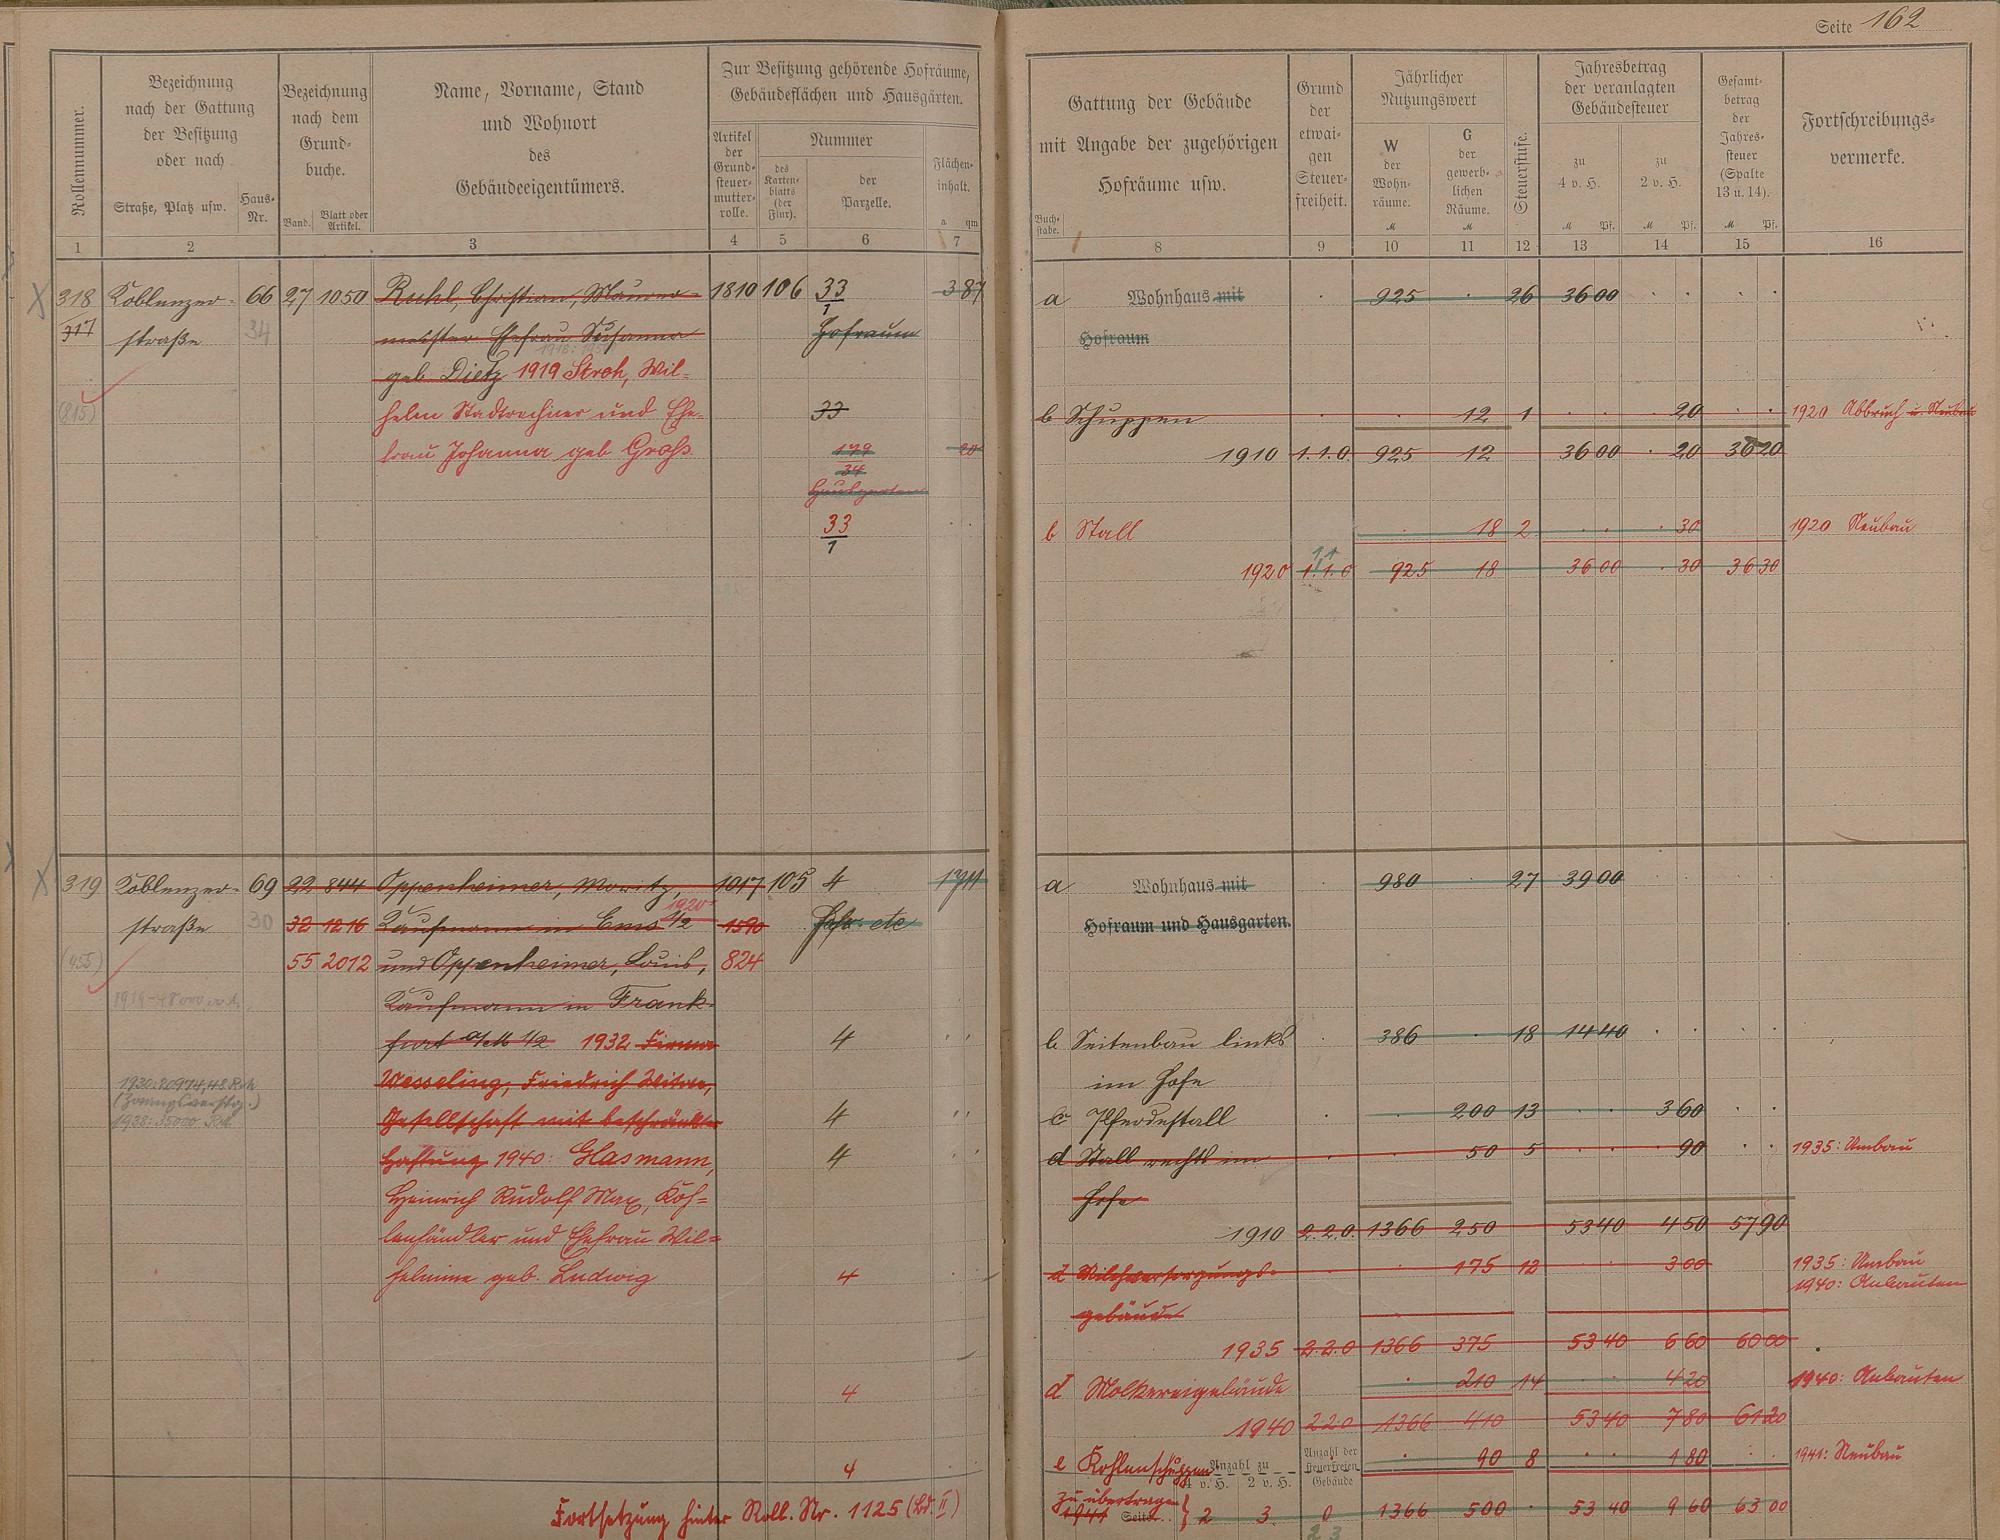 Seite 162
Rollennummer.
Bezeichnung
nach der Gattung
der Besitzung
oder nach
Straße, Platz usw.
Haus-
Nr.
Bezeichnung
nach dem
Grund-
buche.
Band.
Blatt oder
Artikel.
Name, Vorname, Stand
und Wohnort
des
Gebäudeeigentümers.
Zur Besitzung gehörende Hofräume,
Gebäudeflächen und Hausgärten.
Artikel
der
Grund-
steuer-
mutter-
rolle.
Nummer
des
Karten-
blatts
(der
Flur).
der
Parzelle.
Flächen-
inhalt.
a qm
1 2 3 4 5 6 7
Gattung der Gebäude
mit Angabe der zugehörigen
Hofräume usw.
Buch-
stabe.
Grund
der
etwai-
gen
Steuer-
freiheit.
Jährlicher
Nutzungswert
W
der
Wohn-
räume.
M
G
der
gewerb-
lichen
Räume.
M
Steuerstufe.
Jahresbetrag
der veranlagten
Gebäudesteuer
zu
4 v. H.
M Pf.
zu
2 v. H.
M Pf.
Gesamt-
betrag
der
Jahres-
steuer
(Spalte
13 u. 14).
M Pf.
Fortschreibungs-
vermerke.
8 9 10 11 12 13 14 15 16
318 Koblenzer- 66 27 1050 Ruhl, Christian, Maurer- 1810 106 33/1 3 87
317 straße 34 meister Ehefrau Susanna Hofraum
geb. Dietz 1919 Stroh, Wil-
(815) helm Stadtrechner und Ehe- 33
frau Johanna geb Groß 179/34 20
Hausgarten
33/1
a Wohnhaus mit 925 26 36 00
Hofraum
b Schuppen 12 1 20 1920 Abbruch u. Neubau
1910 1.1.0. 925 12 36 00 20 36 20
b Stall 18 2 30 1920 Neubau
1.1
1920 1.1.0 925 18 36 00 30 36 30
319 Koblenzer- 69 22 844 Oppenheimer, Moritz, 1017 105 4 17 11
1920
straße 30 32 1216 Kaufmann in Ems 1/2 1590 Hofr. etc
(455) 55 2012 und Oppenheimer, Louis, 824
Kaufmann in Frank-
furt a/M 1/2 1932 Firma 4
1930: 20974,48 Rm
(Zwangsverstg.)
1938: 35000 RM
Wesseling, Friedrich Witwe,
Gesellschaft mit beschränkter 4
Haftung 1940: Glasmann, 4
Heinrich Rudolf Max, Koh-
lenhändler und Ehefrau Wil-
helmine geb. Ludwig 4
4
4
Fortsetzung hinter Roll. Nr. 1125 (Bd. II)
a Wohnhaus mit 980 27 39 00
Hofraum und Hausgarten.
b Seitenbau links 386 18 14 40
im Hofe
c Pferdestall 200 13 3 60
d Stall rechts im 50 5 90 1935: Umbau
Hofe
1910 2.2.0. 1366 250 53 40 4 50 57 90
d Milchversorgungs- 175 12 3 00 1935: Umbau
1940: Anbauten
gebäude
1935 2.2.0 1366 375 53 40 6 60 60 00
d Molkereigebäude 210 14 4 20 1940: Anbauten
1940 2.2.0 1366 410 53 40 7 80 61 20
e Kohlenschuppen 90 8 1 80 1941: Neubau
Anzahl zu
4 v. H. 2 v. H.
Anzahl der
steuerfreien
Gebäude
Zu übertragen
1941 Seite 2 3 0 1366 500 53 40 9 60 63 00
2 3